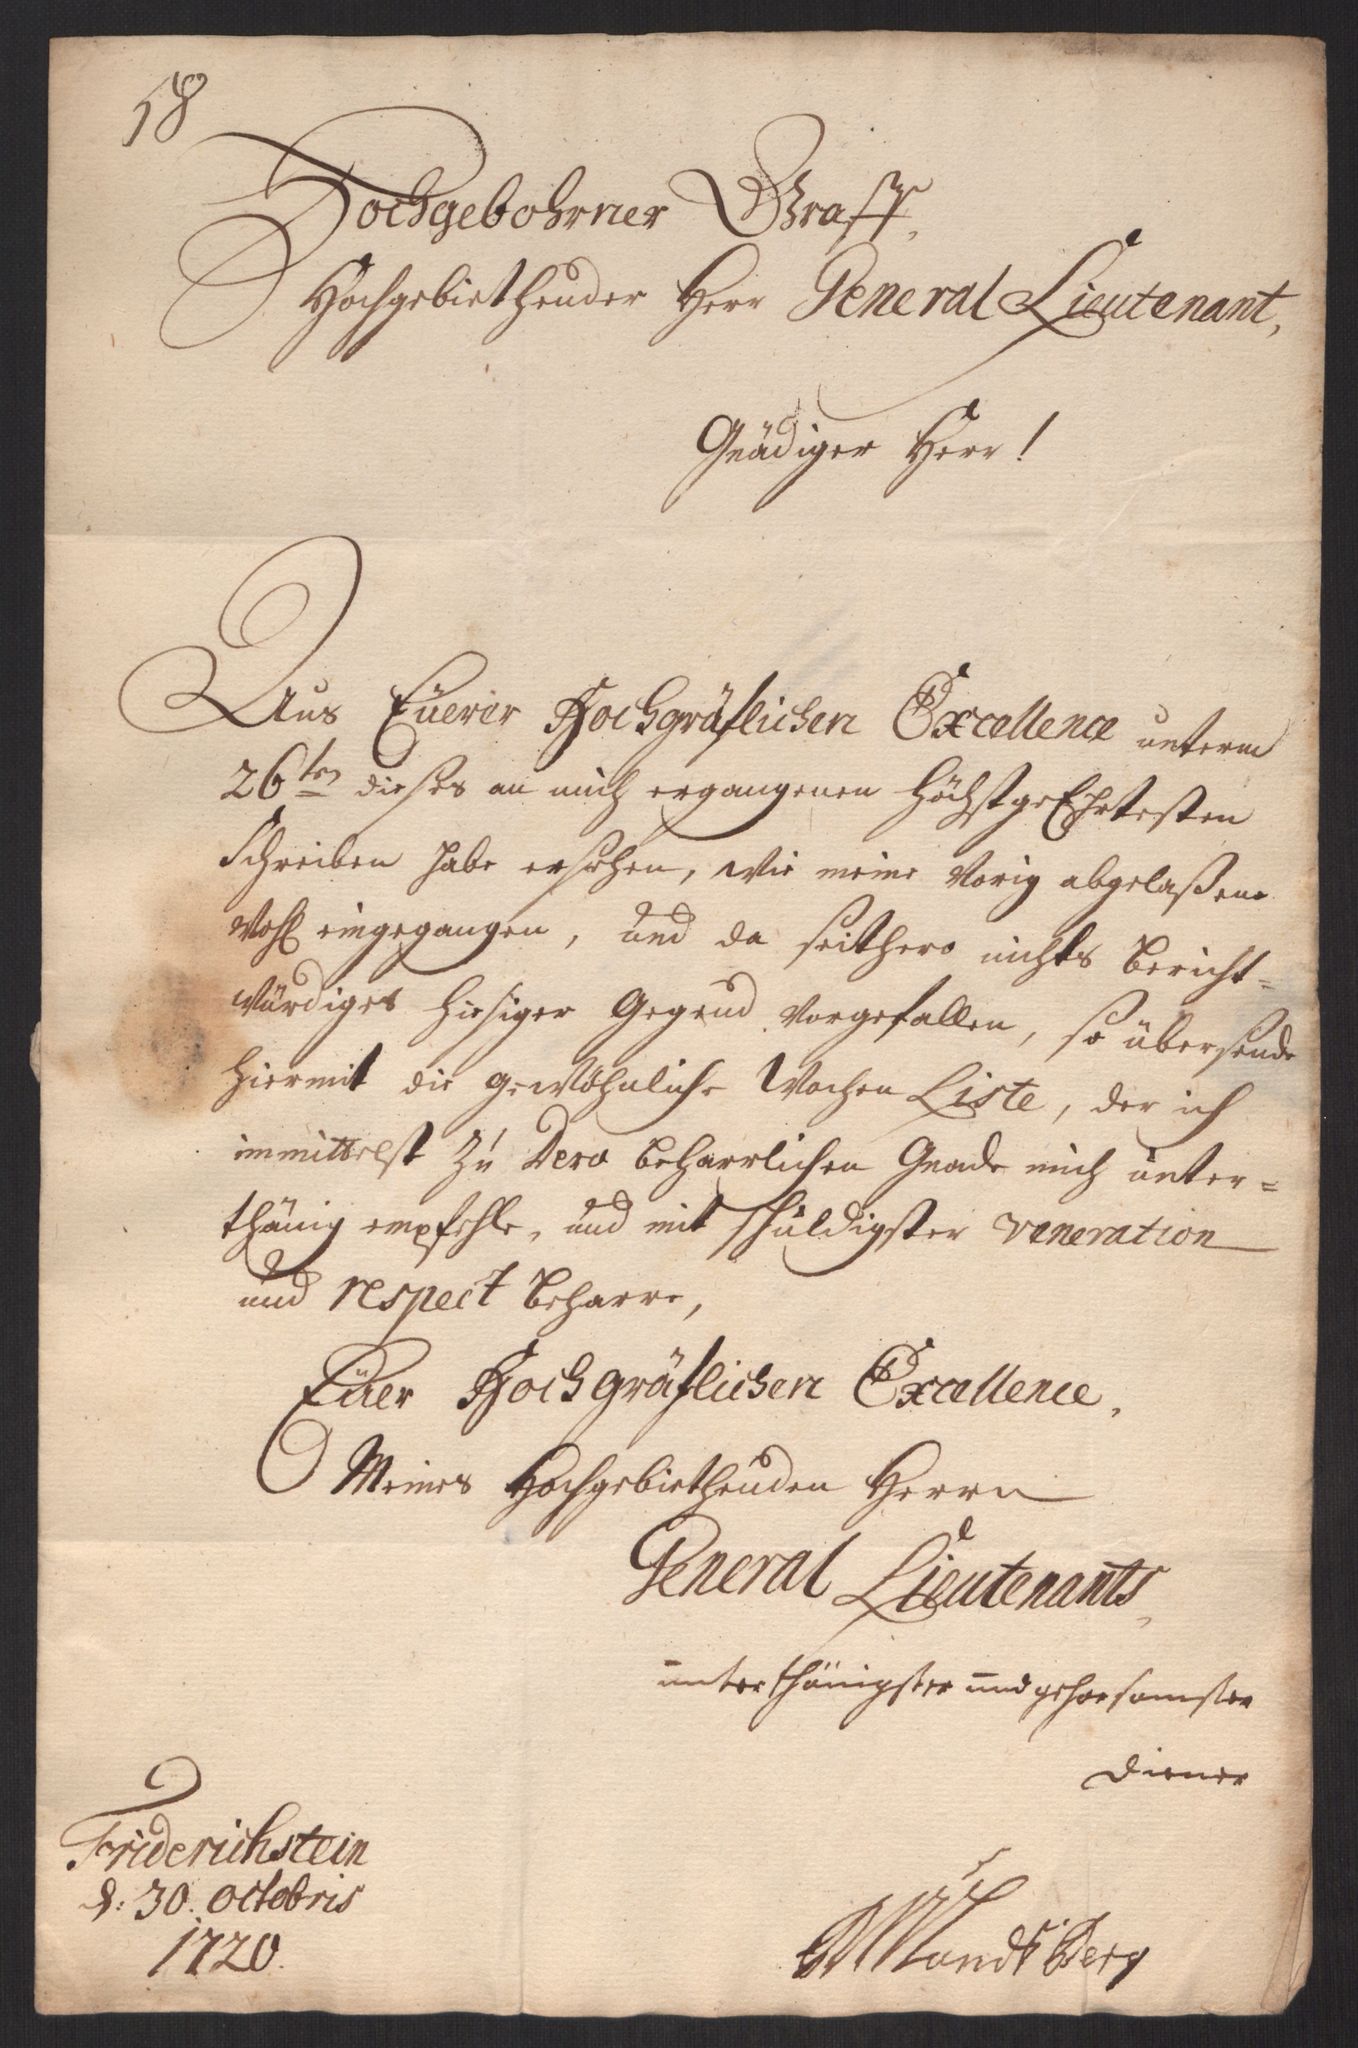 58
Hochgebohrner Graff,
Hochgebiethender Herr General Lieutenant,
Gnädiger Herr!
Aus Eüerer Hochgräflichen Excellence unterm
26ten dieses an mich ergangenen HöchstgeEhrtesten
Schreiben habe ersehen, wie meine Vorig abgelaßene
Wohl eingegangen, und da seithero nichts bericht-
würdiges hiesiger Gegend vorgefallen, so übersende
hiermit die gewöhnliche Wochen Liste, der ich
immittelst zu Dero beharrlichen Gnade mich unter-
thänig empfehle, und mit schuldigster veneration
und respect beharre,
Eüer Hochgräflichen Excellence,
Meines Hochgebiethenden Herrn
General Lieutenants,
unterthänigster und gehorsamster
Diener
Friderichstein
d: 30. octobris
1720.
Mandtberg